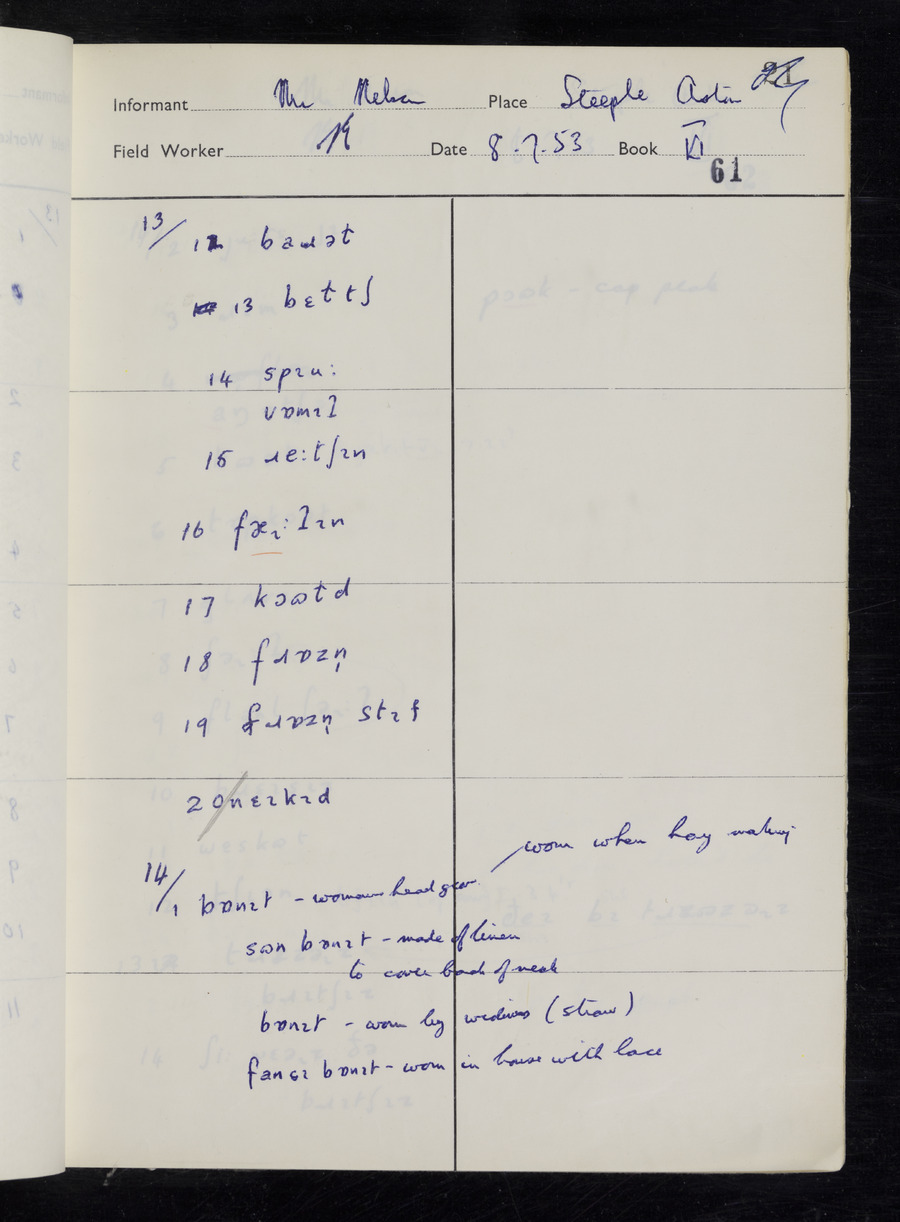 Informant Mr Nelson Place Steeple Aston
Field Worker Date 8.7.53 Book VI
61
13/ 12 baɹət
13 bɛttʃ
14 spɪu:
vɒmɪɫ
15 ɹe:tʃɪn
16 fæɪ:lɪn
17 kɔʊtd
18 fɹɒzn̩
19 fɹɒzn̩ stɪf
20 nɛɪkɪd
14/ 1 bɒnɪt - womans head gear worn when hay making
sʊn bɒnɪt - made of linen
to cover back of neck
bɒnɪt - worn by widows (straw)
fansɪ bɒnɪt - worn in house with lace